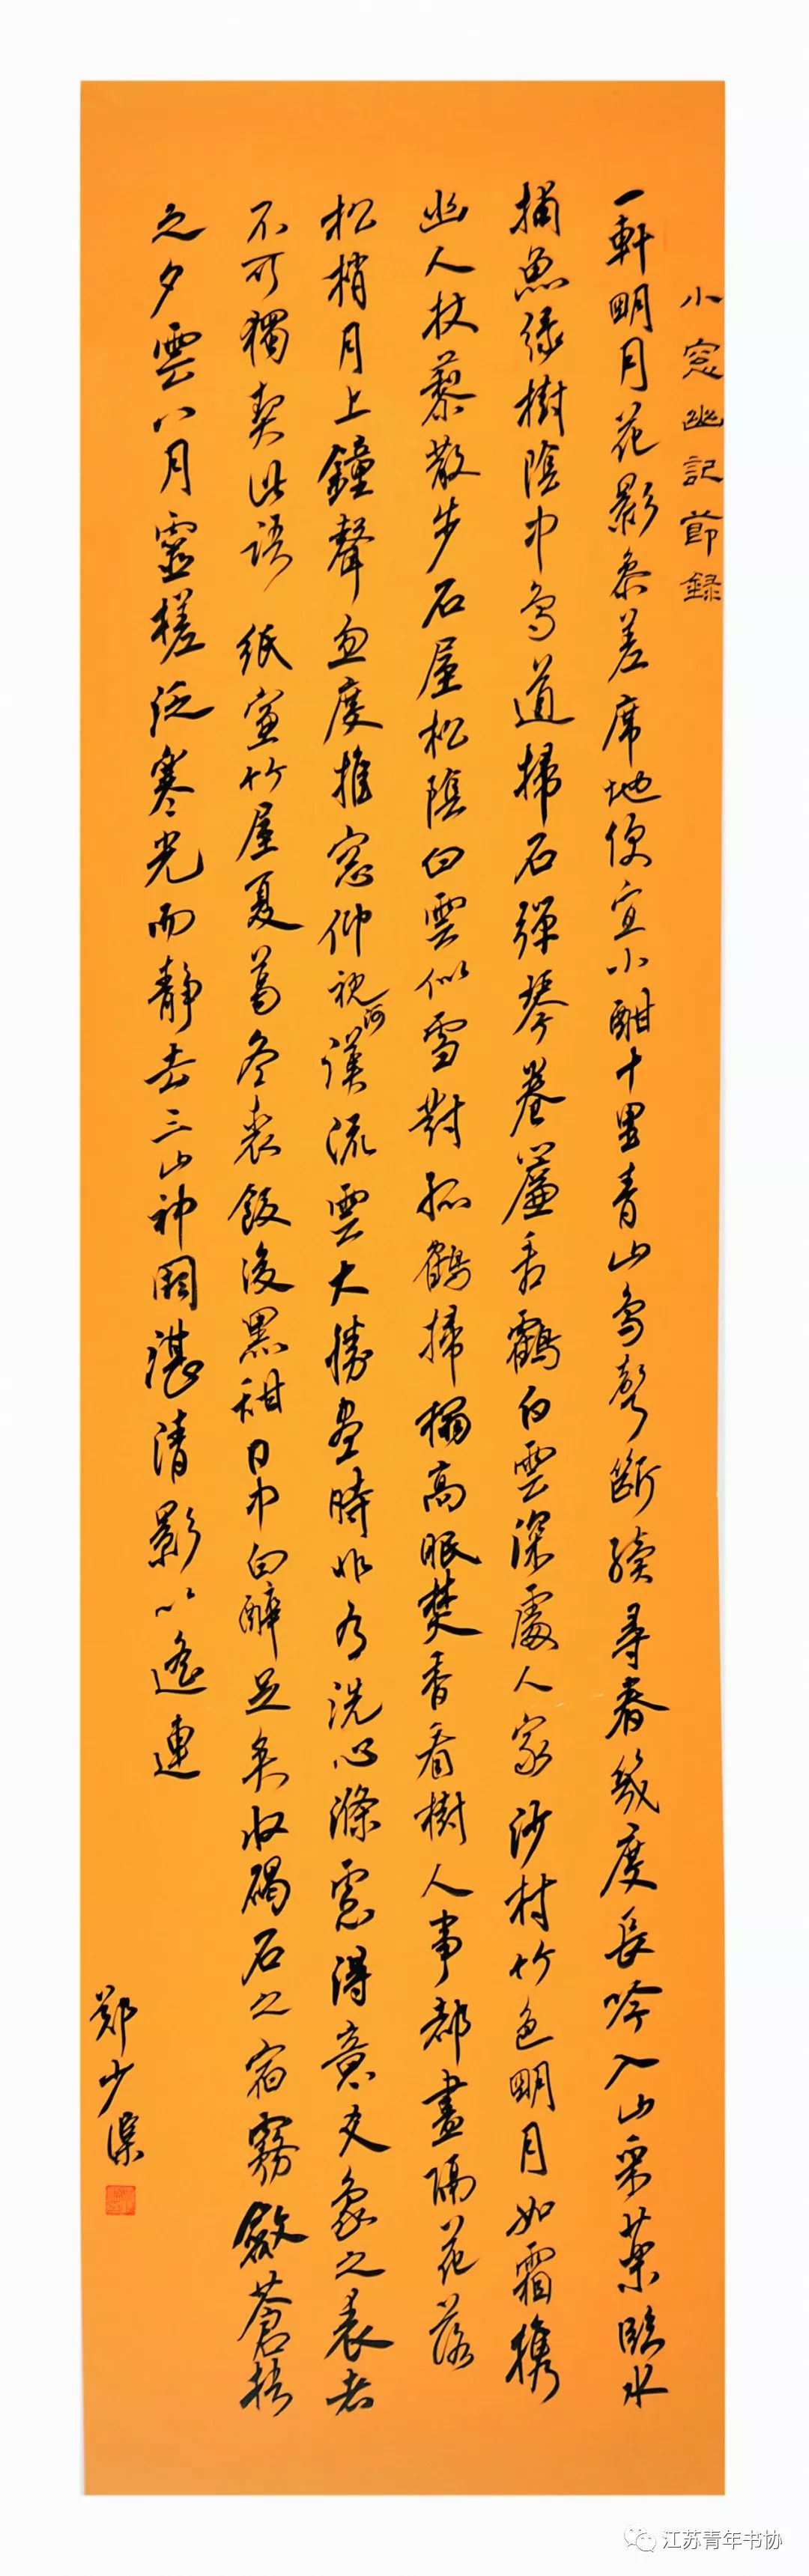 小窓幽記節録
一軒明月花影參差席地便宜小酣十里青山鳥聲斷續尋春幾度長吟入山采藥臨水
捕魚綠樹陰中鳥道掃石彈琴卷簾看鶴白雲深處人家沙村竹色明月如霜攜
幽人杖藜散步石屋松陰白雲似雪對孤鶴掃榻高眠焚香看樹人事都盡隔花落
松梢月上鐘聲忽度推窓仰視河漢流雲大勝晝時非有洗心滌慮得意爻象之表者
不可獨契此語 紙窓竹屋夏葛冬裘飯後黑甜日中白醉足矣收碣石之宿霧斂蒼梧
之夕雲八月靈槎泛寒光而靜去三山神闕湛清影以遙連
鄭少渠
江苏青年书协